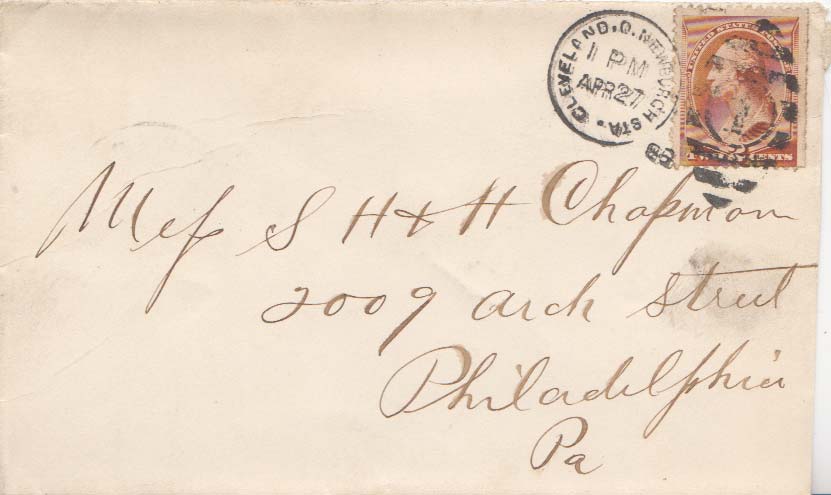 CLEVELAND, O. NEWBURGH STA.
1 PM
APR 27
UNITED STATES
CENTS
Mess S H & H Chapman
2009 Arch Street
Philadelphia
Pa